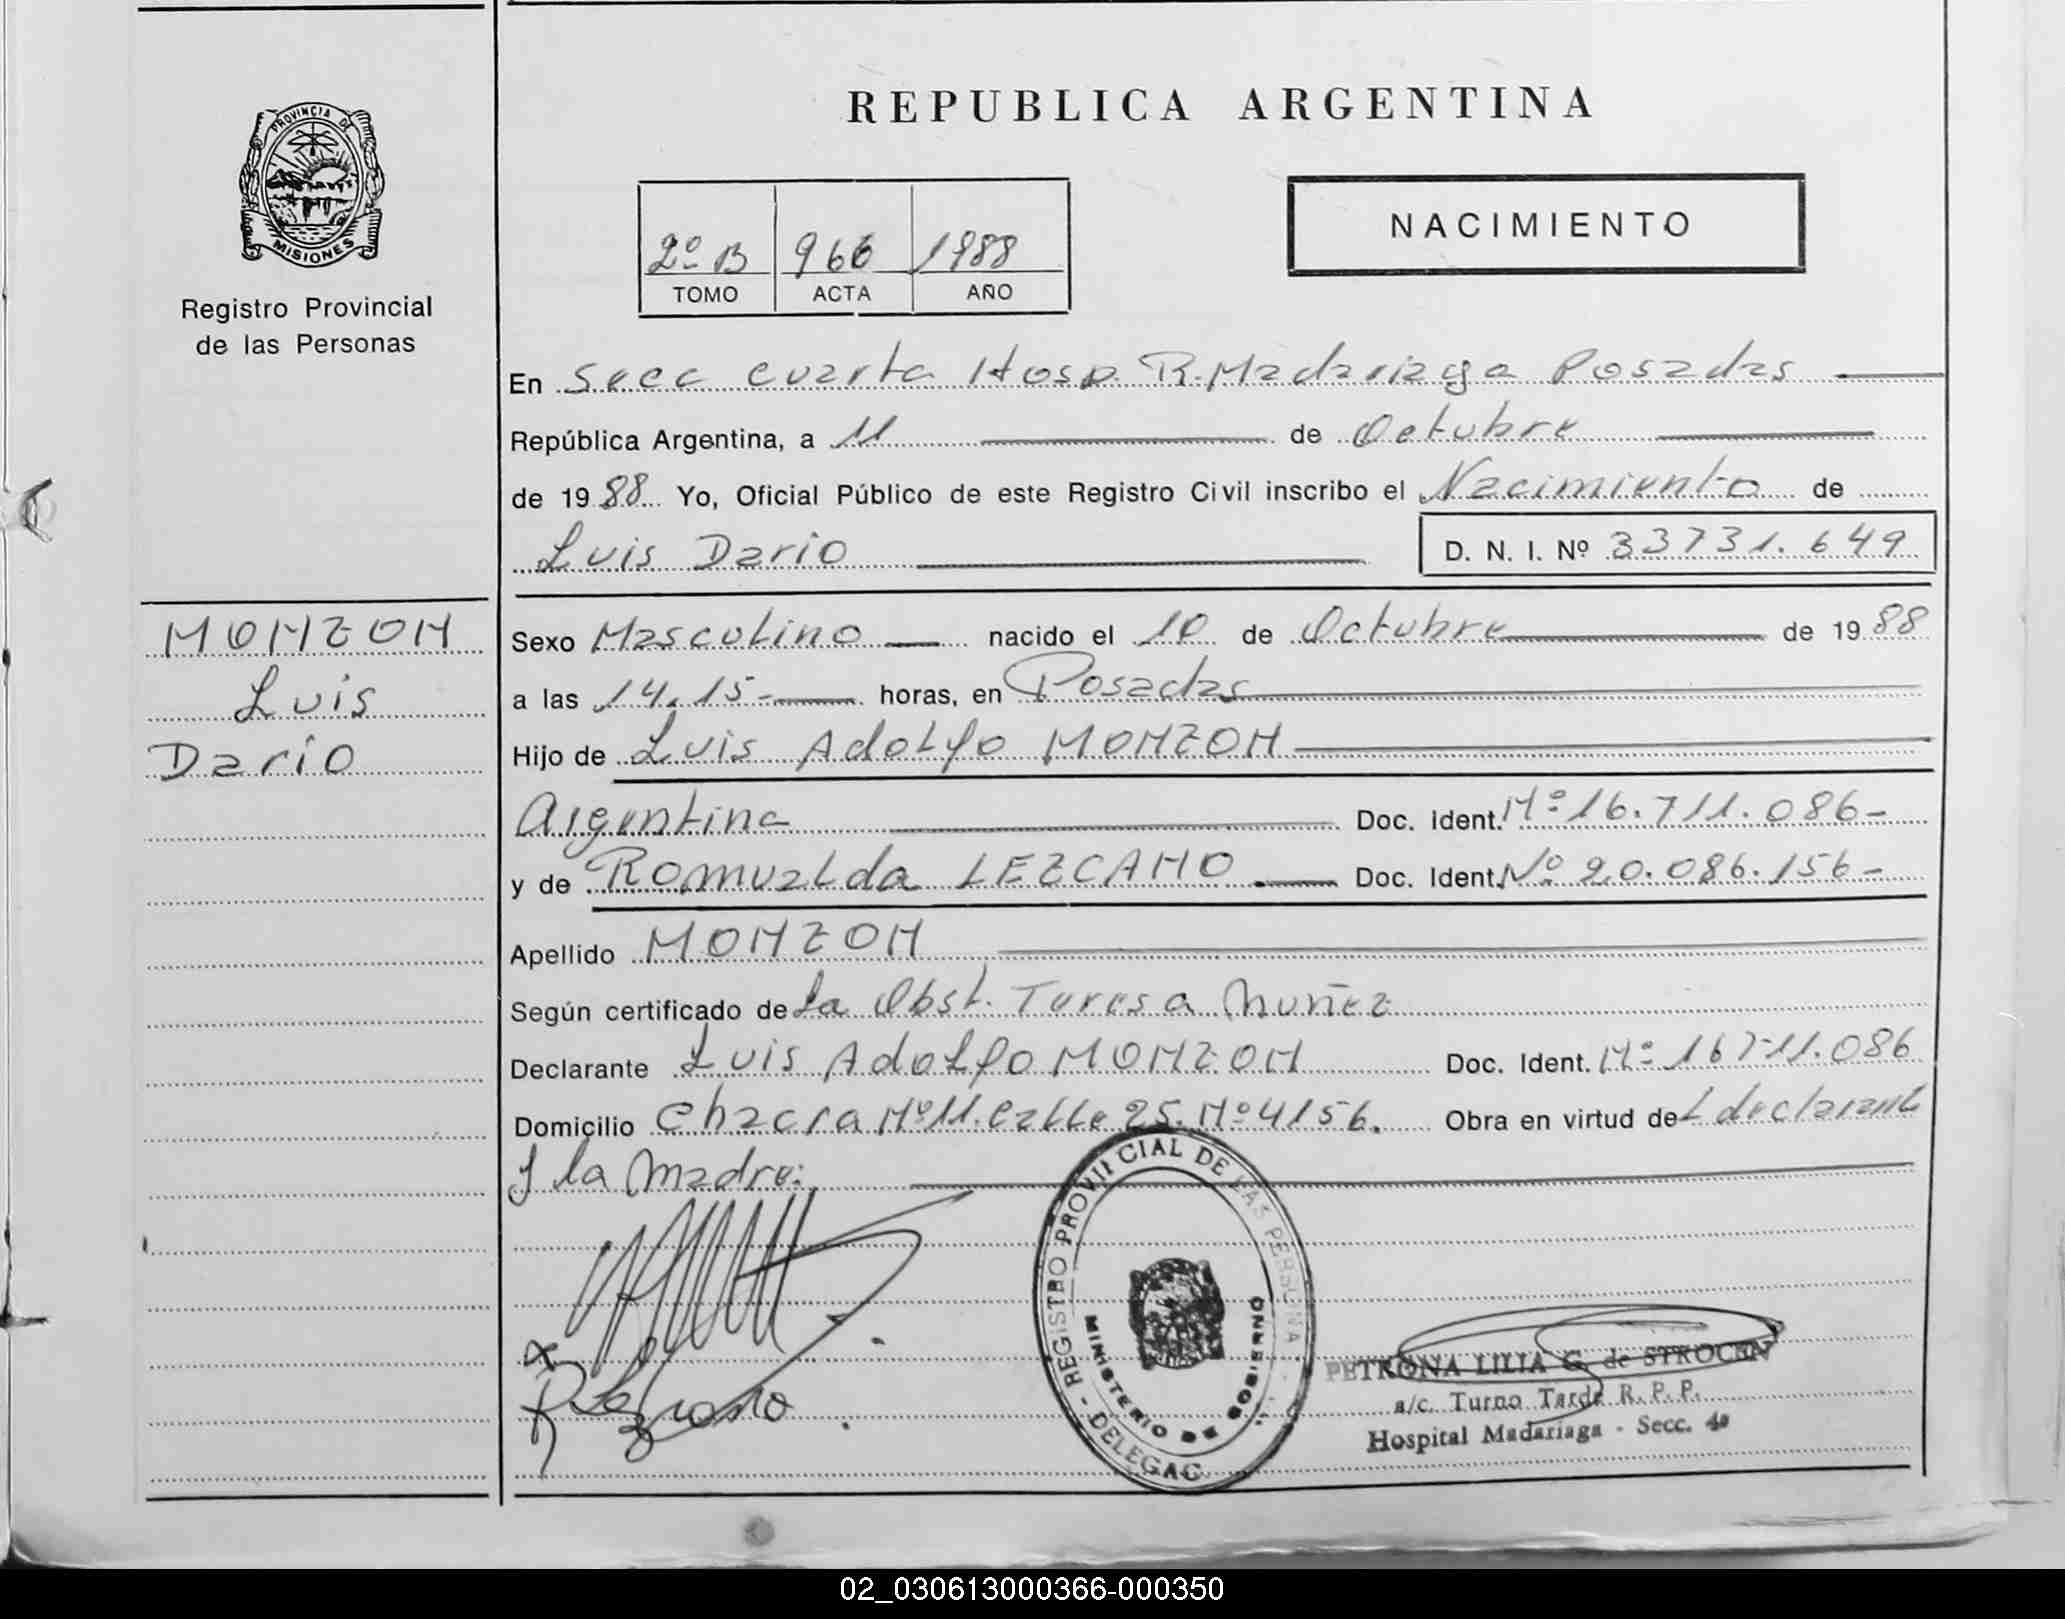 PROVINCIA DE
MISIONES
Registro Provincial
de las Personas
MONZON
Luis
Dario
REPUBLICA ARGENTINA
2º B 966 1988
TOMO ACTA AÑO
NACIMIENTO
En Secc cuarta Hosp. R. Madariaga Posadas
República Argentina, a 11 de Octubre
de 1988 Yo, Oficial Público de este Registro Civil inscribo el Nacimiento de
Luis Dario D. N. I. Nº 33731.649
Sexo Masculino nacido el 10 de Octubre de 1988
a las 14.15- horas, en Posadas
Hijo de Luis Adolfo MONZON
Argentina Doc. Ident. Nº 16.711.086-
y de Romualda LEZCANO Doc. Ident. Nº 20.086.156-
Apellido MONZON
Según certificado de la Obst. Teresa Nuñez
Declarante Luis Adolfo MONZON Doc. Ident. Nº 16711.086
Domicilio Chacra Nº 11. Calle 25. Nº 4156. Obra en virtud del declarante
y la Madre:
REGISTRO PROVINCIAL DE LAS PERSONA
MINISTERIO DE GOBIERNO
DELEGAC
PETRONA LILIA G. de STROCEN
a/c. Turno Tarde R. P. P.
Hospital Madariaga - Secc. 4a
02_030613000366-000350